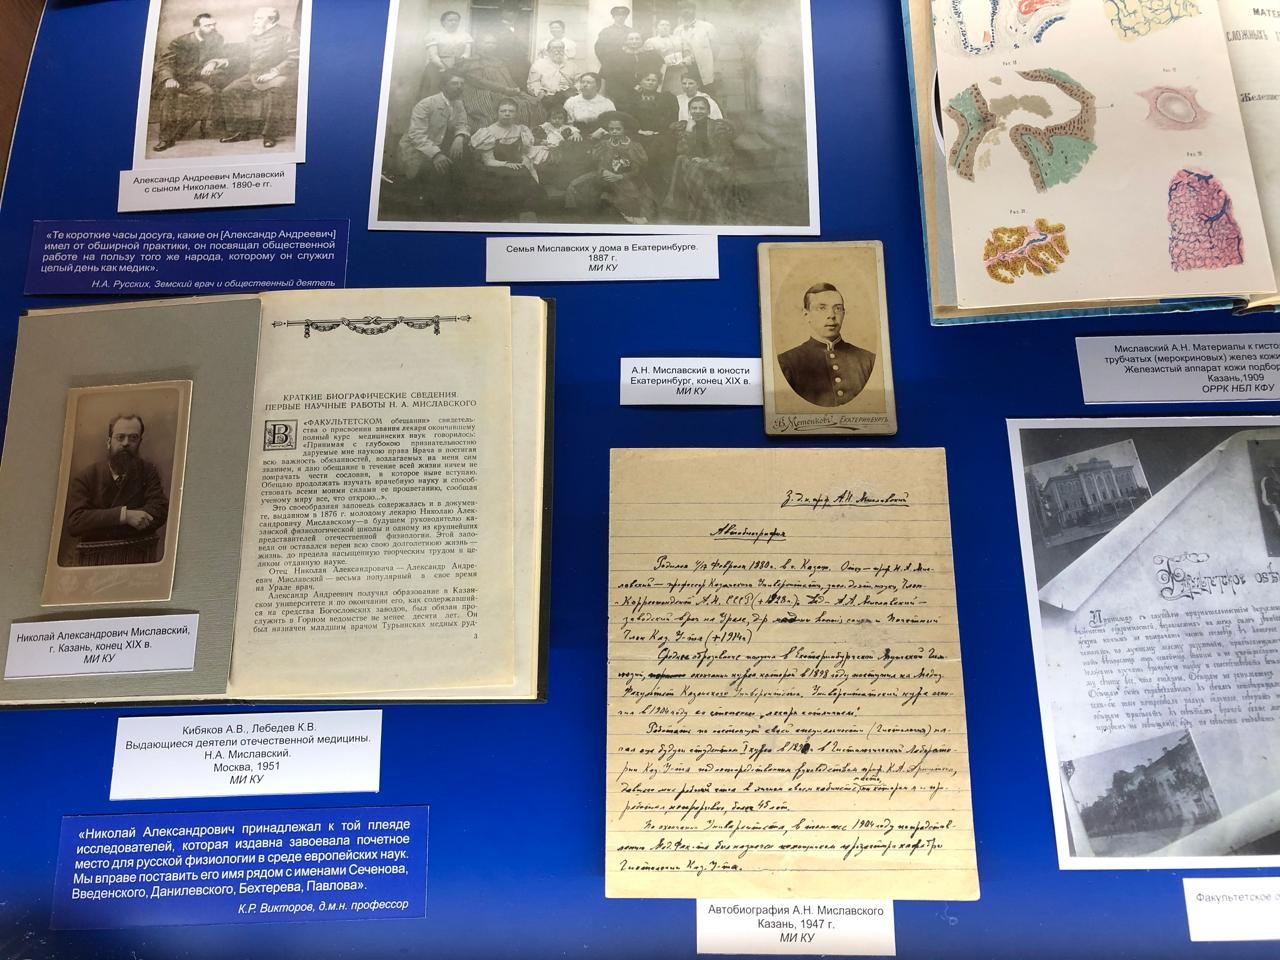 Александр Андреевич Миславский
с сыном Николаем. 1890-е гг.
МИ КУ
«Те короткие часы досуга, какие он [Александр Андреевич]
имел от обширной практики, он посвящал общественной
работе на пользу того же народа, которому он служил
целый день как медик».
Н.А. Русских, Земский врач и общественный деятель
Семья Миславских у дома в Екатеринбурге.
1887 г.
МИ КУ
А.Н. Миславский в юности
Екатеринбург, конец XIX в.
МИ КУ
Екатеринбургъ
МАТЕР
СЛОЖНЫХЪ
Желези
Миславский А.Н. Материалы к гисто
трубчатых (мерокриновых) желез кожи
Железистый аппарат кожи подбор
Казань,1909
ОРРК НБЛ КФУ
КРАТКИЕ БИОГРАФИЧЕСКИЕ СВЕДЕНИЯ.
ПЕРВЫЕ НАУЧНЫЕ РАБОТЫ Н. А. МИСЛАВСКОГО
В «ФАКУЛЬТЕТСКОМ обещании» свидетель-
ства о присвоении звания лекаря окончившему
полный курс медицинских наук говорилось:
«Принимая с глубокою признательностию
даруемые мне наукою права Врача и постигая
всю важность обязанностей, возлагаемых на меня сим
званием, я даю обещание в течение всей жизни ничем не
помрачать чести сословия, в которое ныне вступаю.
Обещаю продолжать изучать врачебную науку и способ-
ствовать всеми моими силами ее процветанию, сообщая
ученому миру все, что открою...»
Это своеобразная заповедь содержалась и в докумен-
те, выданном в 1876 г. молодому лекарю Николаю Алек-
сандровичу Миславскому—в будущем руководителю ка-
занской физиологической школы и одному из крупнейших
представителей отечественной физиологии. Этой запо-
веди он оставался верен всю свою долголетнюю жизнь —
жизнь, до предела насыщенную творческим трудом и це-
ликом отданную науке.
Отец Николая Александровича — Александр Андре-
евич Миславский — весьма популярный в свое время
на Урале врач.
Александр Андреевич получил образование в Казан-
ском университете и по окончании его, как содержавший-
ся на средства Богословских заводов, был обязан про-
служить в Горном ведомстве не менее десяти лет. Он
был назначен младшим врачом Турьинских медных руд-
3
Николай Александрович Миславский,
г. Казань, конец XIX в.
МИ КУ
Кибяков А.В., Лебедев К.В.
Выдающиеся деятели отечественной медицины.
Н.А. Миславский.
Москва, 1951
МИ КУ
«Николай Александрович принадлежал к той плеяде
исследователей, которая издавна завоевала почетное
место для русской физиологии в среде европейских наук.
Мы вправе поставить его имя рядом с именами Сеченова,
Введенского, Данилевского, Бехтерева, Павлова».
К.Р. Викторов, д.м.н. профессор
З.д.н. проф. А.Н. Миславский
Автобиография
Родился Февраля 1880. в г. Казани. Отец — проф. Н.А. Мис-
лавский — профессор Казанского Университета, Член-
Корреспондент А.Н. СССР (+1928г.). Дед — А.А. Миславский —
заводский врач на Урале, д-р и Почетный
Член Каз. У-та (+1914г)
Среднее образование получил в Екатеринбургской Мужской Гим-
назии, окончании курса которой в 1898 году поступил на Медиц.
Факультет Казанского Университета. Университетский курс окон-
чил в 1904 году со степенью „лекаря с отличием".
Работать по настоящей своей специальности (Гистологии) на-
чал еще будучи студентом I курса в в Гистологической Лаборато-
рии Каз. У-та под непосредственным руководством проф. К.А. Арнштейна,
работаю непрерывно, более 45 лет.
По окончании Университета, в 1904 году
Мед. Фак-та был назначен помощником прозектора кафедры
Гистологии Каз. У-та.
Автобиография А.Н. Миславского
Казань, 1947 г.
МИ КУ
Факультетское о